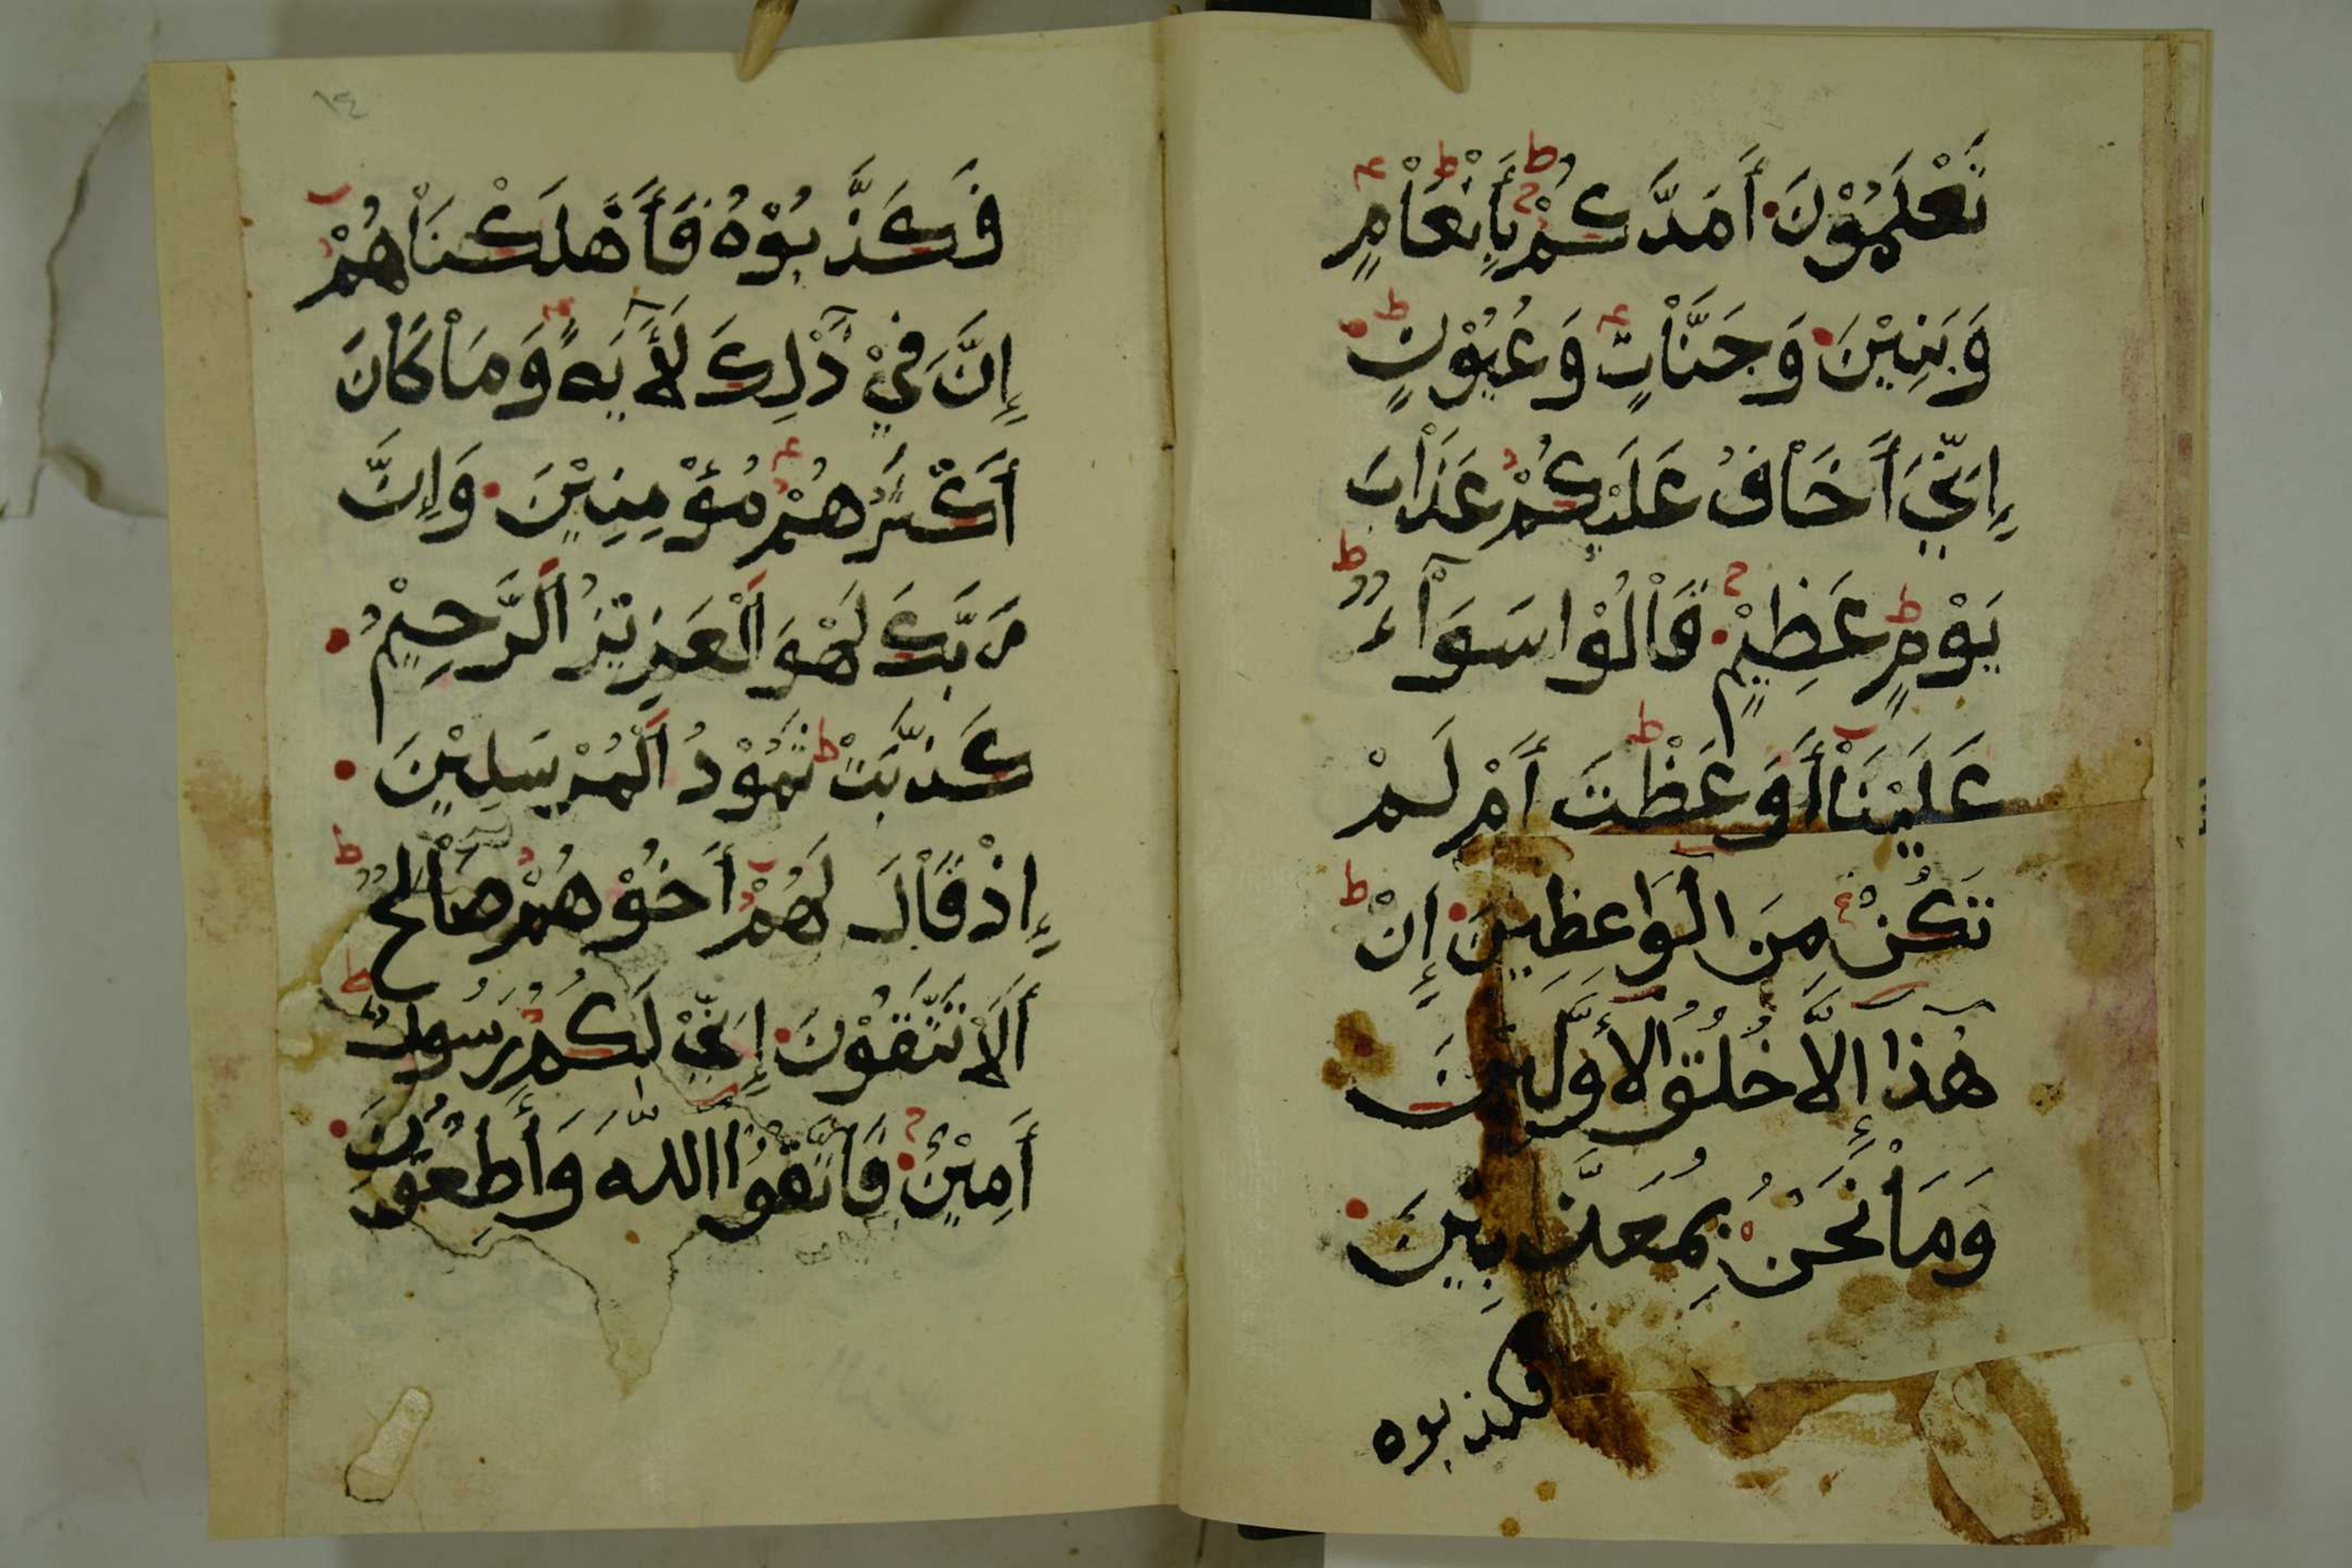 تَعْلَمُوْنَ أَمَدَّكُمْ بِأَنْعَاْمٍ
وَبَنِيْنَ وَجَنَّاْتٍ وَعُيُوْنٍ
إِنِّيَ أَخَاْفُ عَلَيْكُمْ عَذَاْبَ
يَوْمٍ عَظِيْمٍ قَاْلُوْا سَوَآءٌ
عَلَيْنَاْ أَوَعَظْتَ أَمْ لَمْ
تَكُنْ مِنَ الْوَاعِظِينَ إِنْ
هٰذَا إِلَّا خُلُقُ الْأَوَّلِينَ
وَمَاْ نَحْنُ بِمُعَذَّبِيْنَ
فكذبوه
١٤
فَكَذَّبُوْهُ فَأَهْلَكْنَاْهُمْ
إِنَّ فِيْ ذَٰلِكَ لَأٓيَةً وَمَاْ كَاْنَ
أَكْثَرُهُمْ مُؤْمِنِيْنَ وَإِنَّ
رَبَّكَ لَهْوَ الْعَزِيْزُ الرَّحِيْمُ
كَذَّبَتْ ثَمُوْدُ الْمُرْسَلِيْنَ
إِذْ قَاْلَ لَهُمْ أَخُوْهُمْ صَاْلِحٌ
أَلَاْ تَتَّقُوْنَ إِنِّيْ لَكُمْ رَسُوْلٌ
أَمِيْنٌ فَاتَّقُوْا اللَّهَ وَأَطِيْعُوْنِ